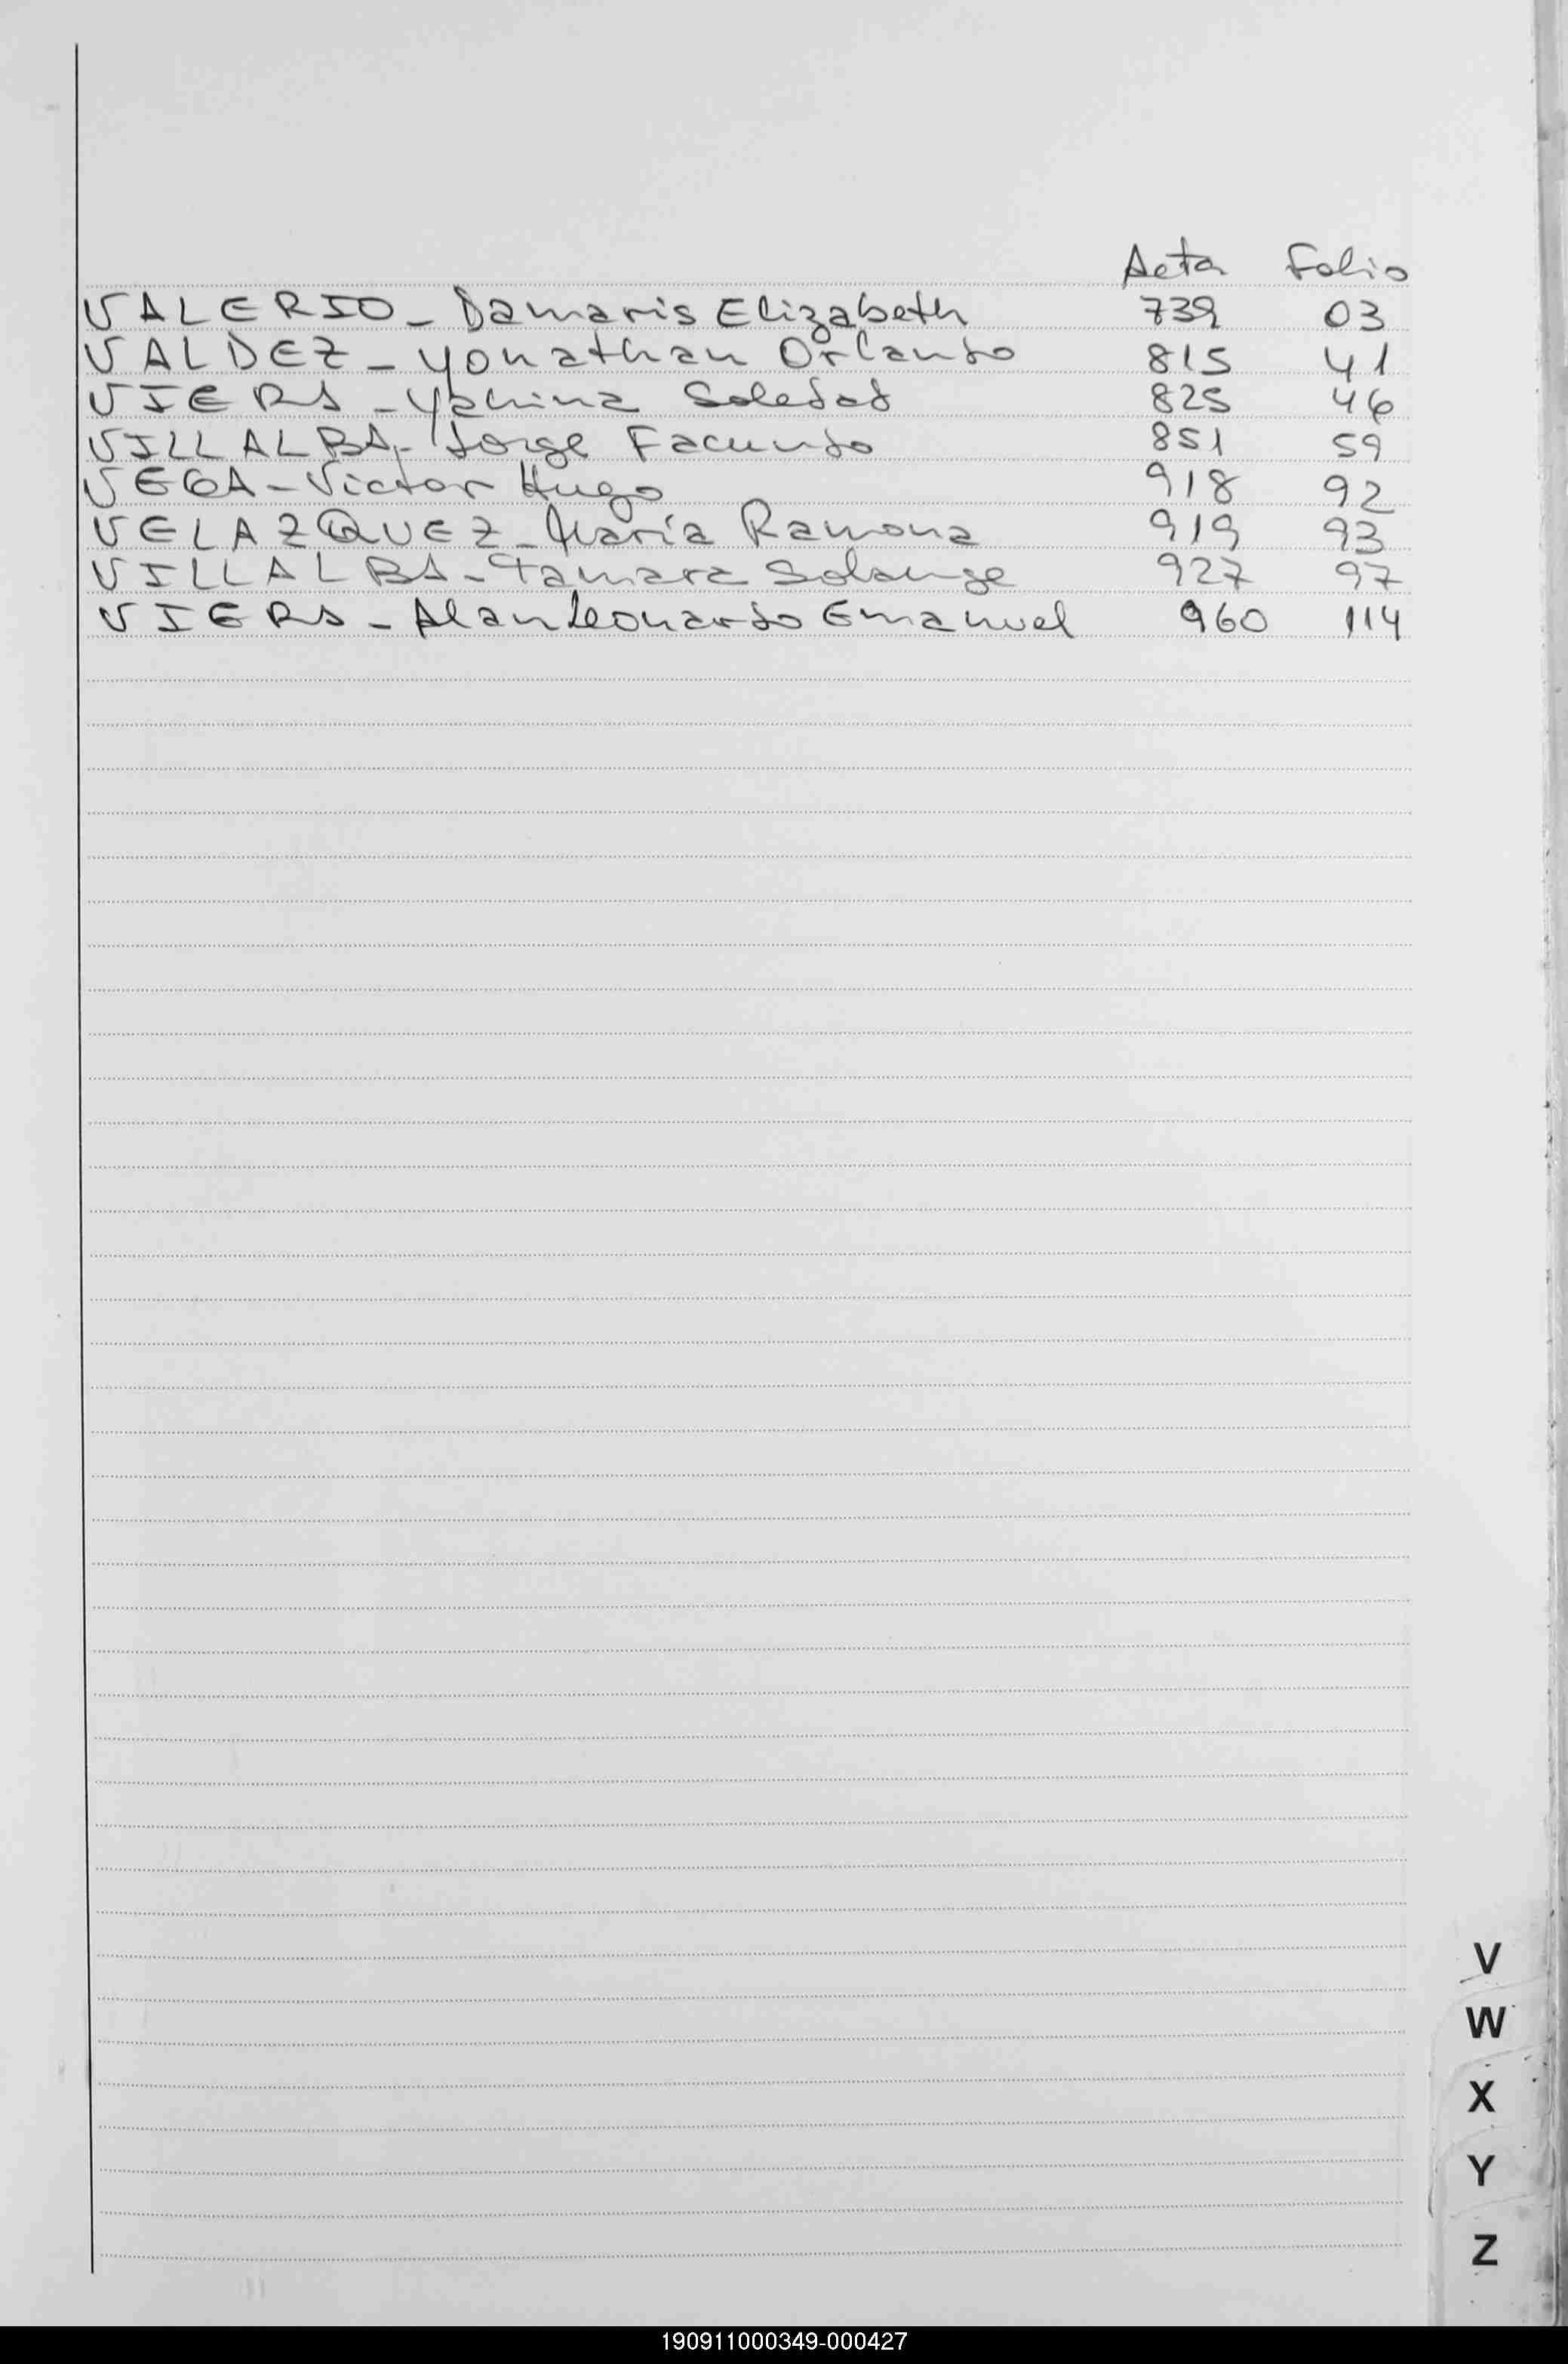 Acta Folio
VALERIO - Damaris Elizabeth 739 03
VALDEZ - Yonathan Orlando 815 41
VIERA - Yahina Soledad 825 46
VILLALBA - Jorge Facundo 851 59
VEGA - Victor Hugo 918 92
VELAZQUEZ - María Ramona 919 93
VILLALBA - Tamara Solange 927 97
VIERA - Alan Leonardo Emanuel 960 114
V
W
X
Y
Z
190911000349-000427